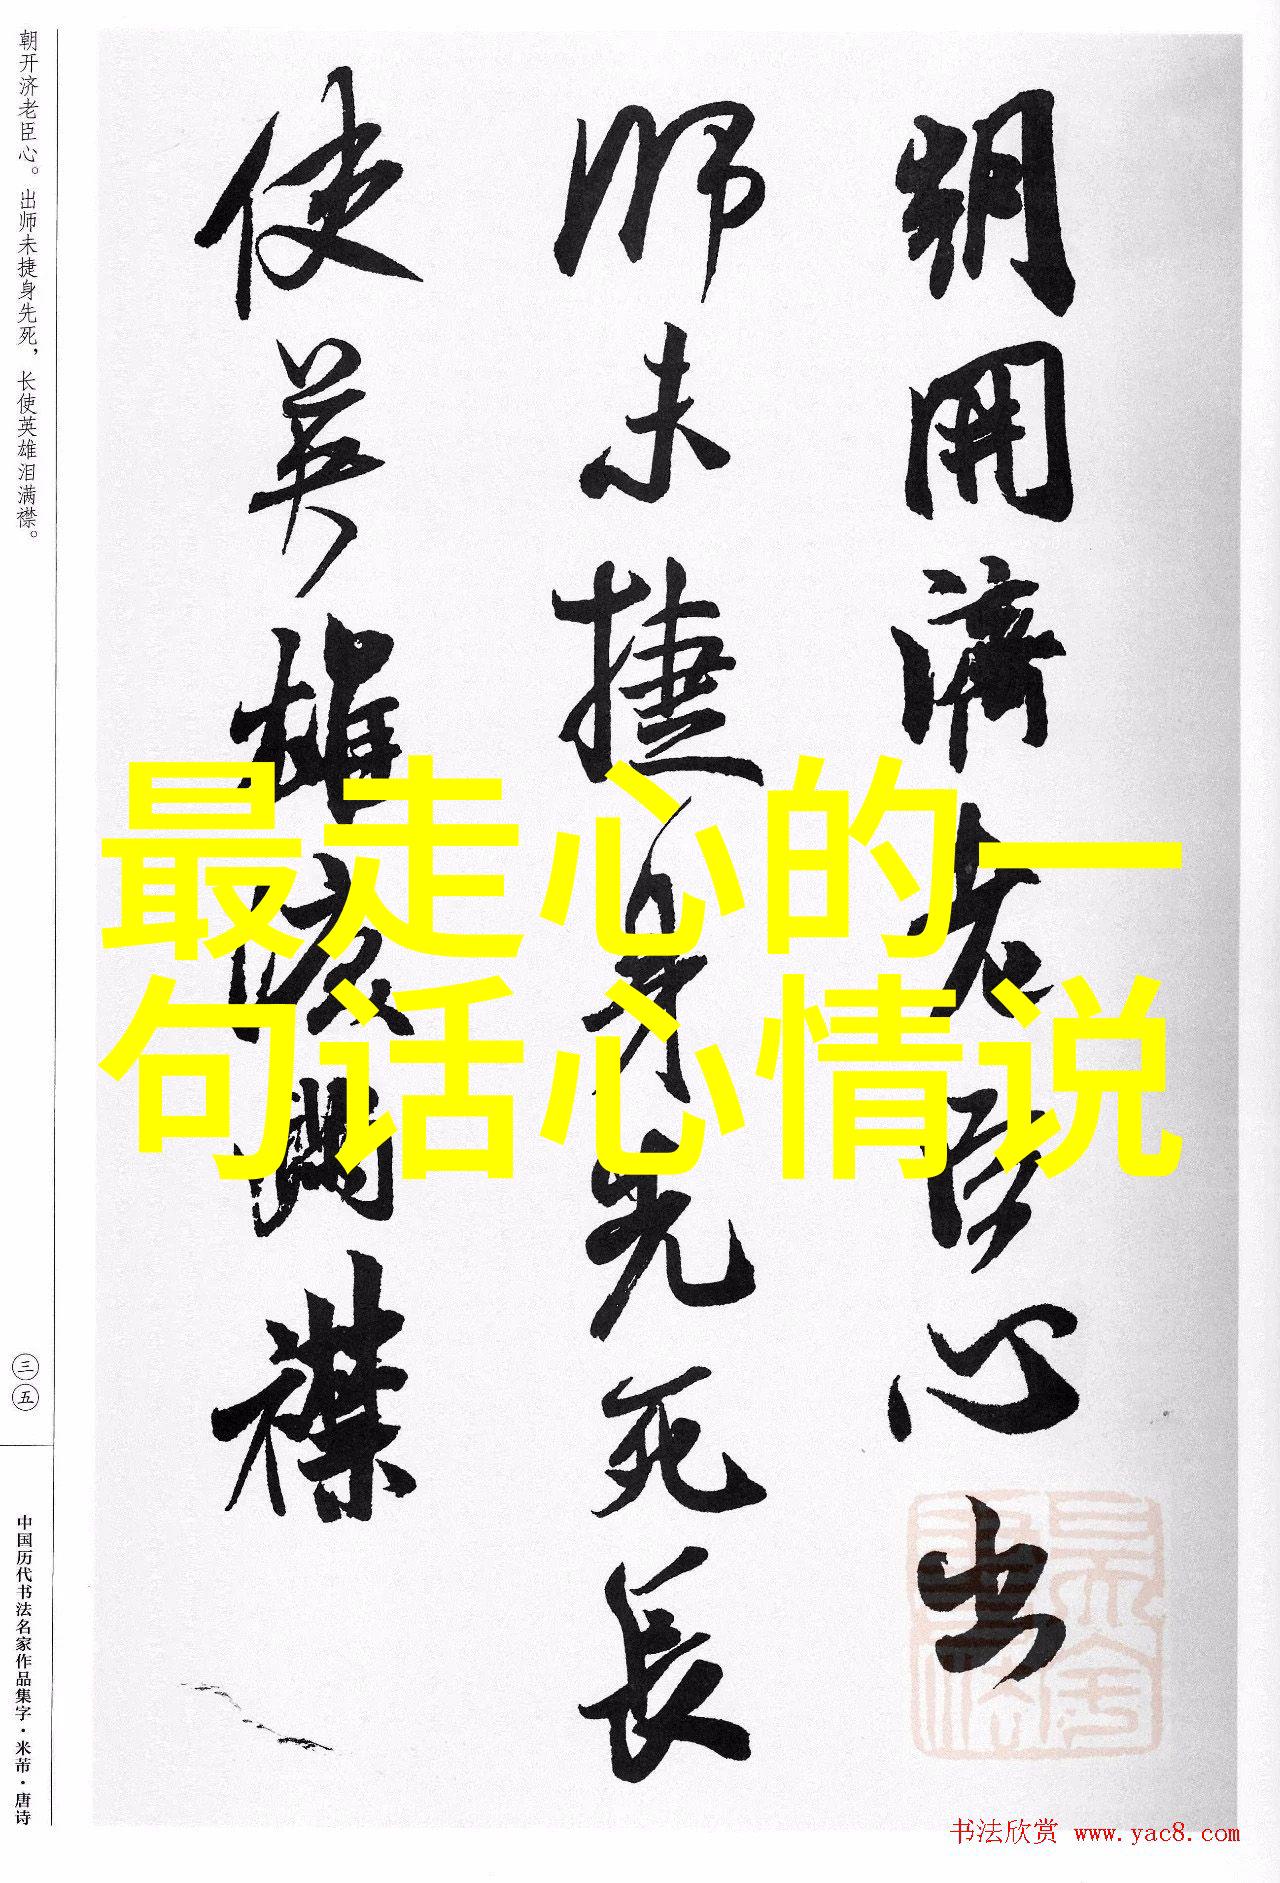 朝開濟老臣心出
師未捷身先死長
使英雄淚滿襟
朝开济老臣心。出师未捷身先死，长使英雄泪满襟。
三五
中国历代书法名家作品集字·米芾·唐诗
最走心的一
句话心情说
书法欣赏 www.yac8.com